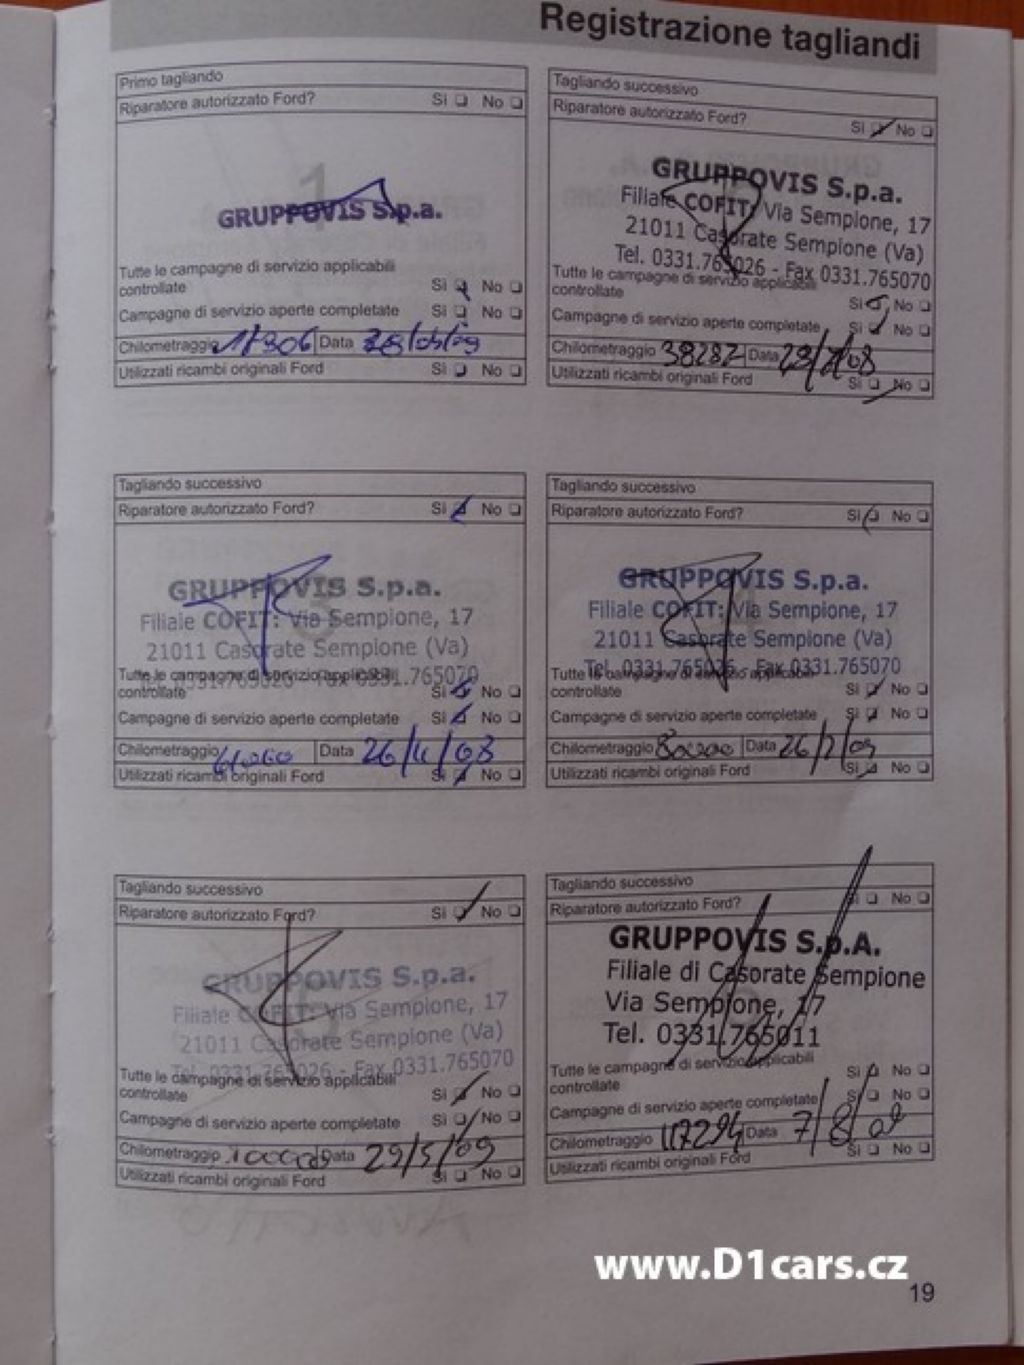 Registrazione tagliandi
Primo tagliando
Riparatore autorizzato Ford? Sì No
GRUPPOVIS S.p.a.
Tutte le campagne di servizio applicabili
controllate Sì No
Campagne di servizio aperte completate Sì No
Chilometraggio Data
Utilizzati ricambi originali Ford Sì No
Tagliando successivo
Riparatore autorizzato Ford? Sì No
GRUPPOVIS S.p.a.
Filiale COFIT: Via Sempione, 17
21011 Casorate Sempione (Va)
Tel. 0331.765026 - Fax 0331.765070
Tutte le campagne di servizio applicabili
controllate Sì No
Campagne di servizio aperte completate Sì No
Chilometraggio 38282 Data
Utilizzati ricambi originali Ford Sì No
Tagliando successivo
Riparatore autorizzato Ford? Sì No
GRUPPOVIS S.p.a.
Filiale COFIT: Via Sempione, 17
21011 Casorate Sempione (Va)
Tutte le campagne di servizio applicabili
controllate Sì No
Campagne di servizio aperte completate Sì No
Chilometraggio Data 26/11/08
Utilizzati ricambi originali Ford Sì No
Tagliando successivo
Riparatore autorizzato Ford? Sì No
GRUPPOVIS S.p.a.
Filiale COFIT: Via Sempione, 17
21011 Casorate Sempione (Va)
Tel. 0331.765026 - Fax 0331.765070
Tutte le campagne di servizio applicabili
controllate Sì No
Campagne di servizio aperte completate Sì No
Chilometraggio Data
Utilizzati ricambi originali Ford Sì No
Tagliando successivo
Riparatore autorizzato Ford? Sì No
GRUPPOVIS S.p.a.
Filiale COFIT: Via Sempione, 17
21011 Casorate Sempione (Va)
Tel. 0331.765026 - Fax 0331.765070
Tutte le campagne di servizio applicabili
controllate Sì No
Campagne di servizio aperte completate Sì No
Chilometraggio Data 29/5/09
Utilizzati ricambi originali Ford Sì No
Tagliando successivo
Riparatore autorizzato Ford? Sì No
GRUPPOVIS S.p.A.
Filiale di Casorate Sempione
Via Sempione, 17
Tel. 0331.765011
Tutte le campagne di servizio applicabili
controllate Sì No
Campagne di servizio aperte completate Sì No
Chilometraggio 117294 Data 7/8/09
Utilizzati ricambi originali Ford Sì No
www.D1cars.cz
19